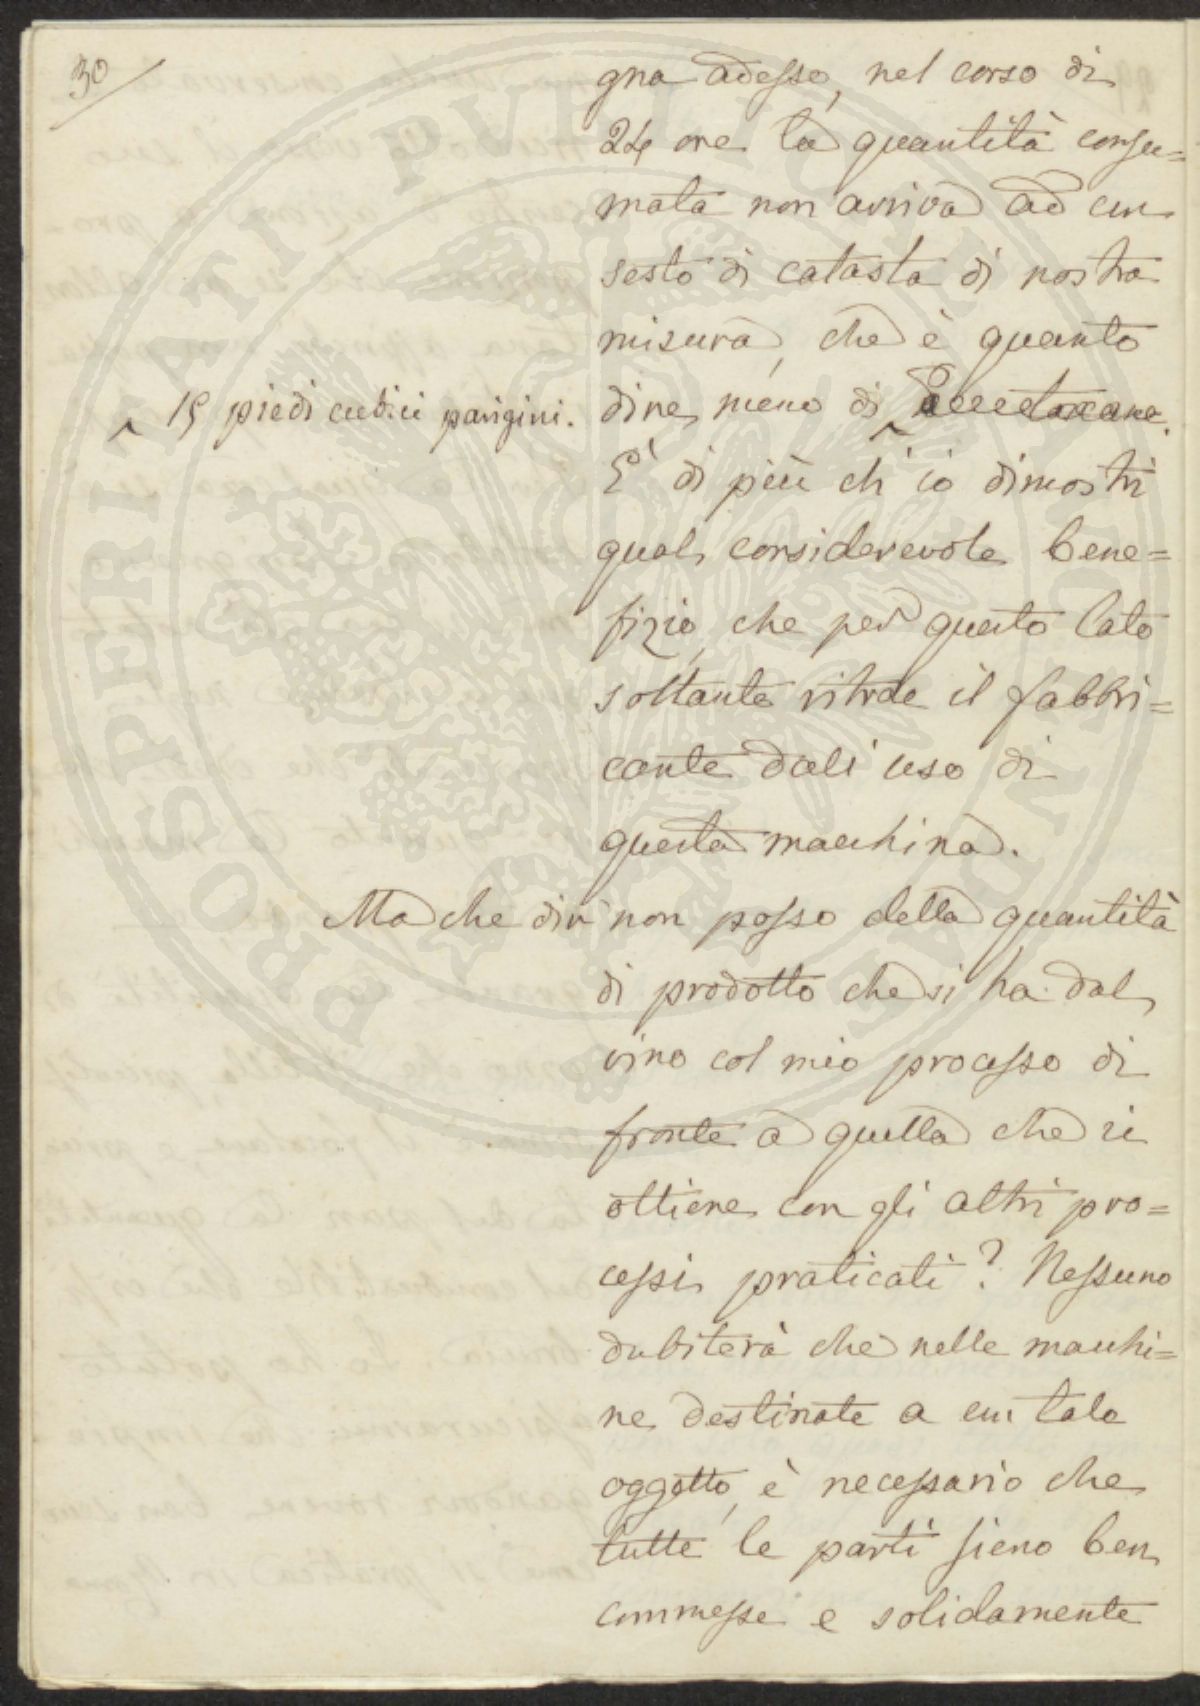 30
gna adesso, nel corso di
24 ore la quantità consu=
mata non arriva ad un
sesto di catasta di nostra
misura, che è quanto
dire meno di
15 piedi cubici parigini.
E' di più ch'io dimostri
qual considerevole bene=
fizio, che per questo lato
soltanto ritrae il fabbri=
cante dall'uso di
questa macchina.
Ma che dir non posso della quantità
di prodotto che si ha dal
vino col mio processo di
fronte a quella che si
ottiene con gli altri pro=
cessi praticati? Nessuno
dubiterà che nelle macchi=
ne destinate a un tale
oggetto, è necessario che
tutte le parti sieno ben
commesse e solidamente
PROSPERITATI PUBLICAE